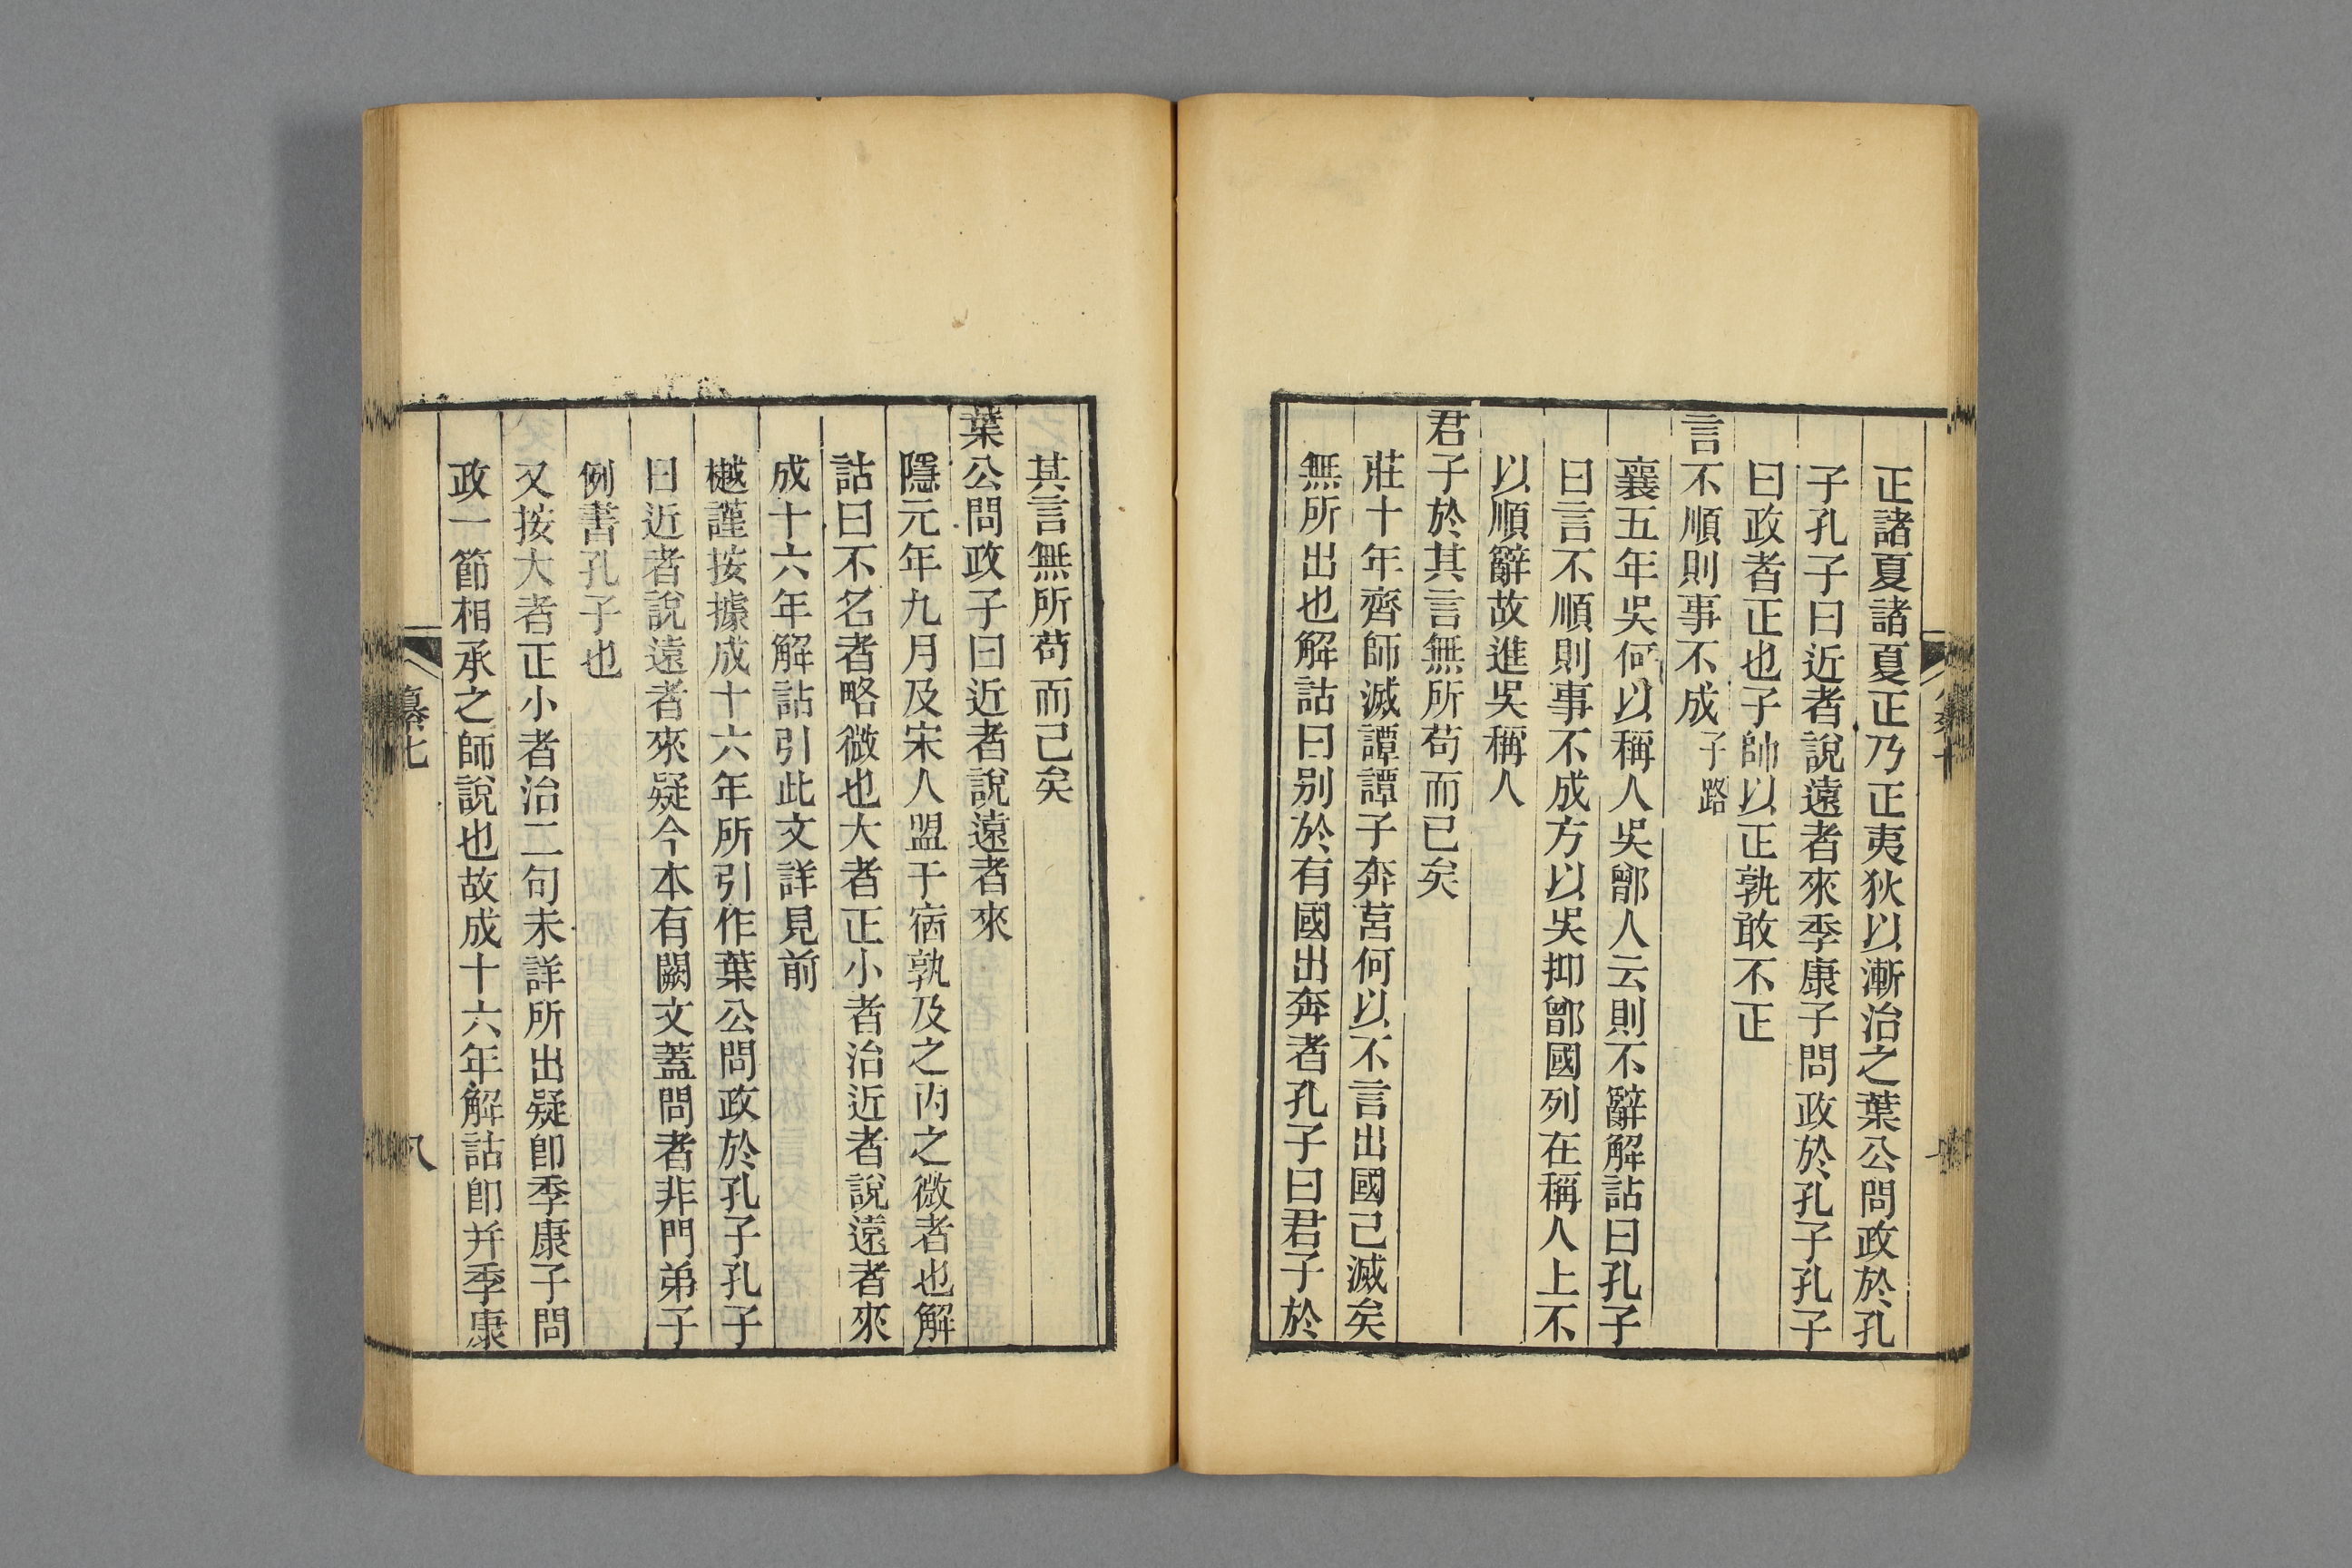 正諸夏諸夏正乃正夷狄以漸治之葉公問政於孔
子孔子曰近者說遠者來季康子問政於孔子孔子
曰政者正也子帥以正孰敢不正
言不順則事不成子路
襄五年吳何以稱人吳鄫人云則不辭解詁曰孔子
曰言不順則事不成方以吳抑鄫國列在稱人上不
以順辭故進吳稱人
君子於其言無所苟而已矣
莊十年齊師滅譚譚子奔莒何以不言出國已滅矣
無所出也解詁曰别於有國出奔者孔子曰君子於
其言無所苟而已矣
葉公問政子曰近者說遠者來
隱元年九月及宋人盟于宿孰及之内之微者也解
詁曰不名者略微也大者正小者治近者說遠者來
成十六年解詁引此文詳見前
樾謹按據成十六年所引作葉公問政於孔子孔子
曰近者說遠者來疑今本有闕文蓋問者非門弟子
例書孔子也
又按大者正小者治二句未詳所出疑卽季康子問
政一節相承之師說也故成十六年解詁卽并季康
纂七
八